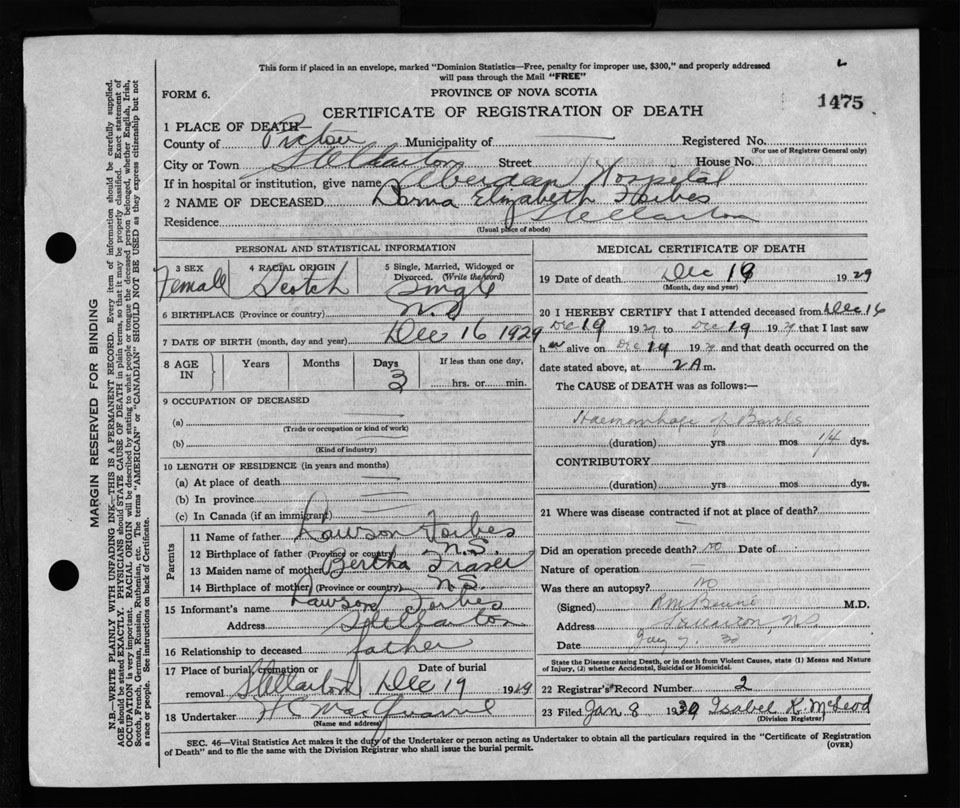 This form if placed in an envelope, marked "Dominion Statistics—Free, penalty for improper use, $300," and properly addressed
will pass through the Mail "FREE"
FORM 6.
PROVINCE OF NOVA SCOTIA
1475
CERTIFICATE OF REGISTRATION OF DEATH
1 PLACE OF DEATH—
County of Pictou Municipality of Registered No.
(For use of Registrar General only)
City or Town Stellarton Street House No.
If in hospital or institution, give name Aberdeen Hospital
2 NAME OF DECEASED Elizabeth Forbes
Residence Stellarton
(Usual place of abode)
PERSONAL AND STATISTICAL INFORMATION
3 SEX 4 RACIAL ORIGIN 5 Single, Married, Widowed or
Divorced. (Write the word)
Female Scotch Single
6 BIRTHPLACE (Province or country) N.S.
7 DATE OF BIRTH (month, day and year) Dec 16 1929
8 AGE IN Years Months Days If less than one day,
3 hrs. or min.
9 OCCUPATION OF DECEASED
(a)
(Trade or occupation or kind of work)
(b)
(Kind of industry)
10 LENGTH OF RESIDENCE (in years and months)
(a) At place of death
(b) In province
(c) In Canada (if an immigrant)
Parents
11 Name of father Lawson Forbes
12 Birthplace of father (Province or country) N.S.
13 Maiden name of mother Bertha Fraser
14 Birthplace of mother (Province or country) N.S.
15 Informant's name Lawson Forbes
Address Stellarton
16 Relationship to deceased father
17 Place of burial, cremation or Date of burial
removal Stellarton Dec 19 1929
18 Undertaker
(Name and address)
MEDICAL CERTIFICATE OF DEATH
19 Date of death Dec 19 1929
(Month, day and year)
20 I HEREBY CERTIFY that I attended deceased from Dec 16
Dec 19 1929 to Dec 19 1929 that I last saw
her alive on Dec 19 1929 and that death occurred on the
date stated above, at 2 A m.
The CAUSE of DEATH was as follows:—
Haemorrhage of
(duration) yrs mos dys.
CONTRIBUTORY
(duration) yrs. mos. dys.
21 Where was disease contracted if not at place of death?
Did an operation precede death? no Date of
Nature of operation —
Was there an autopsy? no
(Signed) M.D.
Address Stellarton, NS
Date Jany 7. 30
State the Disease causing Death, or in death from Violent Causes, state (1) Means and Nature
of Injury, (2) whether Accidental, Suicidal or Homicidal.
22 Registrar's Record Number 2
23 Filed Jan 8 1930 Isabel K. McLeod
(Division Registrar)
SEC. 46—Vital Statistics Act makes it the duty of the Undertaker or person acting as Undertaker to obtain all the particulars required in the "Certificate of Registration
of Death" and to file the same with the Division Registrar who shall issue the burial permit.
(OVER)
MARGIN RESERVED FOR BINDING
N.B.—WRITE PLAINLY WITH UNFADING INK—THIS IS A PERMANENT RECORD. Every item of information should be carefully supplied.
AGE should be stated EXACTLY. PHYSICIANS should STATE CAUSE OF DEATH in plain terms, so that it may be properly classified. Exact statement of
OCCUPATION is very important. RACIAL ORIGIN will be described by stating to what people or tongue the deceased person belonged, whether English, Irish,
Scotch, French, German, Russian, Ruthenian, etc. The terms "AMERICAN" or "CANADIAN" SHOULD NOT BE USED as they express citizenship but not
a race or people. See instructions on back of Certificate.